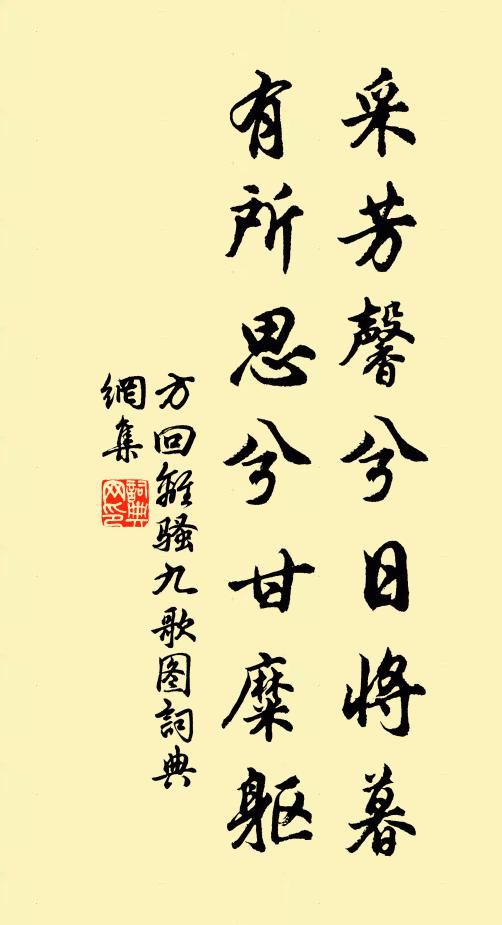 采芳馨兮日将暮
有所思兮甘糜躯
方回离骚九歌图詞典
網集
詞典